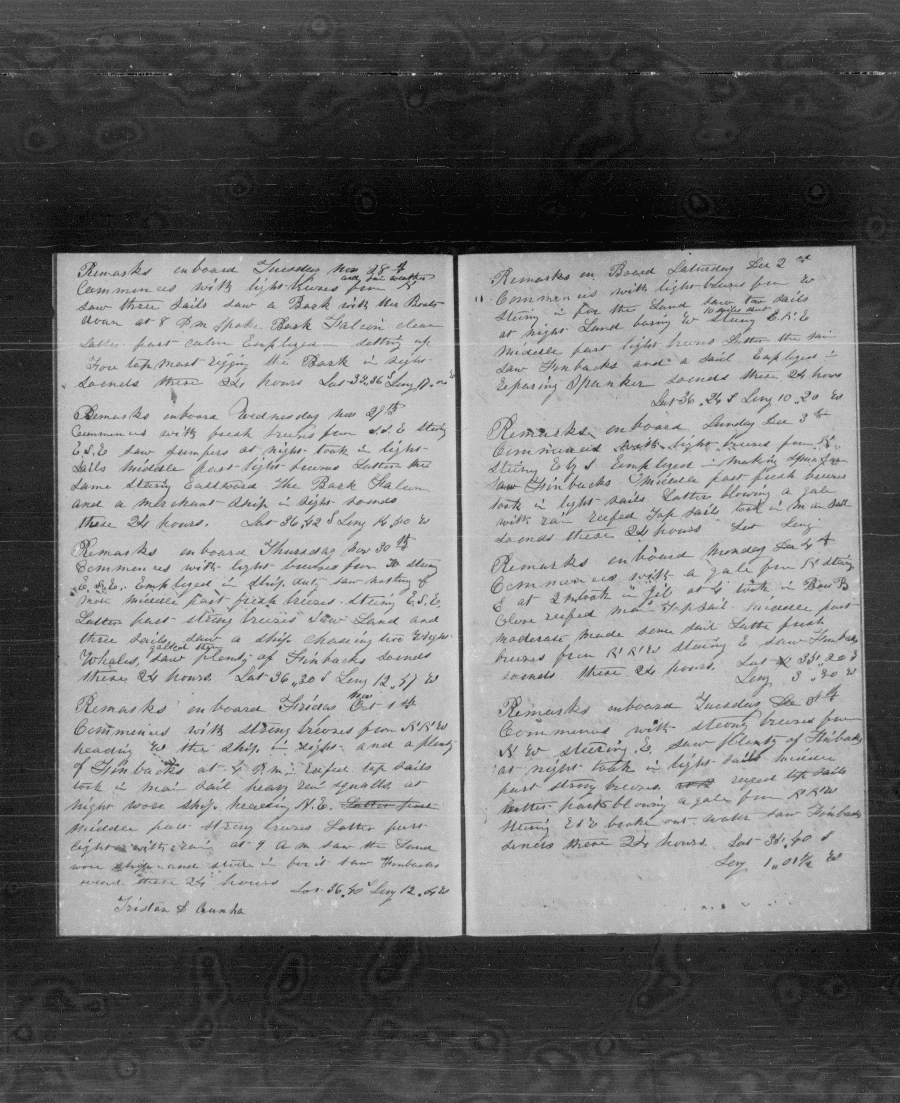 Remarks onboard Tuesday Nov 28th
Commences with light breezes from N and fair weather
saw three sails saw a Bark with the Boats
down at 8 P.M. spoke Bark Falcon clean
Latter part calm Employed in setting up
Fore top mast rigging the Bark in sight
so ends these 24 hours Lat 37.36 S Long 17
Remarks onboard Wednesday Nov 29th
Commences with fresh breezes from S.S.E steering
E.S.E saw jumpers at night took in light
sails middle part light breezes Latter the
same steering Eastward The Bark Falcon
and a merchant ship in sight so ends
these 24 hours. Lat 36,42 S Long 14,40 W
Remarks onboard Thursday Nov 30th
Commences with light breezes from W steering
E.S.E. Employed in ship duty saw nothing of
middle part fresh breezes. steering E.S.E.
Latter part strong breezes saw Land and
three sails saw a ship chasing two Right
Whales, called them saw plenty of Finbacks so ends
these 24 hours. Lat 36,,30 S Long 12,,57 W
Remarks onboard Friday Oct Dec 1st
Commences with strong breezes from N.N.W
heading W the ship in sight and a plenty
of Finbacks at 4 P.m. reefed top sails
took in main sail heavy rain squalls, at
night wore ship heading N.E. Latter part
Middle part strong breezes Latter part
light with rain at 9 A m saw the Land
wore ship and steered in for it saw Finbacks
these 24 hours Lat 36,,40 S Long 12 W
Tristan D Cunha
Remarks on Board Saturday Dec 2nd
Commences with light breeze from W
steering in for the Land saw two sails
at night Land bearing W 10 miles dist steering E.N.E
Middle part light breezes Latter the same
saw Finbacks and a sail Employed in
Reparing Spanker so ends these 24 hours
Lat 36,,24 S Long 10,,20 W
Remarks onboard Sunday Dec 3rd
Commences with light breezes from N
steering E by S Employed in making
saw Finbacks middle part fresh breezes
took in light sails Latter blowing a gale
with rain reefed Top sails took in main sail
so ends these 24 hours Lat Long
Remarks onboard Monday Dec 4th
Commences with a gale from N steering
E at 2 took in Jib at 4 took in
Close reefed main Top sail. middle part
moderate made some sail Latter fresh
breezes from N.N.W steering E saw Finbacks
so ends these 24 hours. Lat 35,,20 S
Long 3,,30 W
Remarks onboard Tuesday Dec 5th
Commences with strong breezes from
N W steering E saw plenty of Finbacks
at night took in light sails middle
part strong breezes. reefed top sails
Latter part blowing a gale from N.N.W
steering broke out water saw Finbacks
so ends these 24 hours. Lat 35,,40 S
Long 1,,01½ W